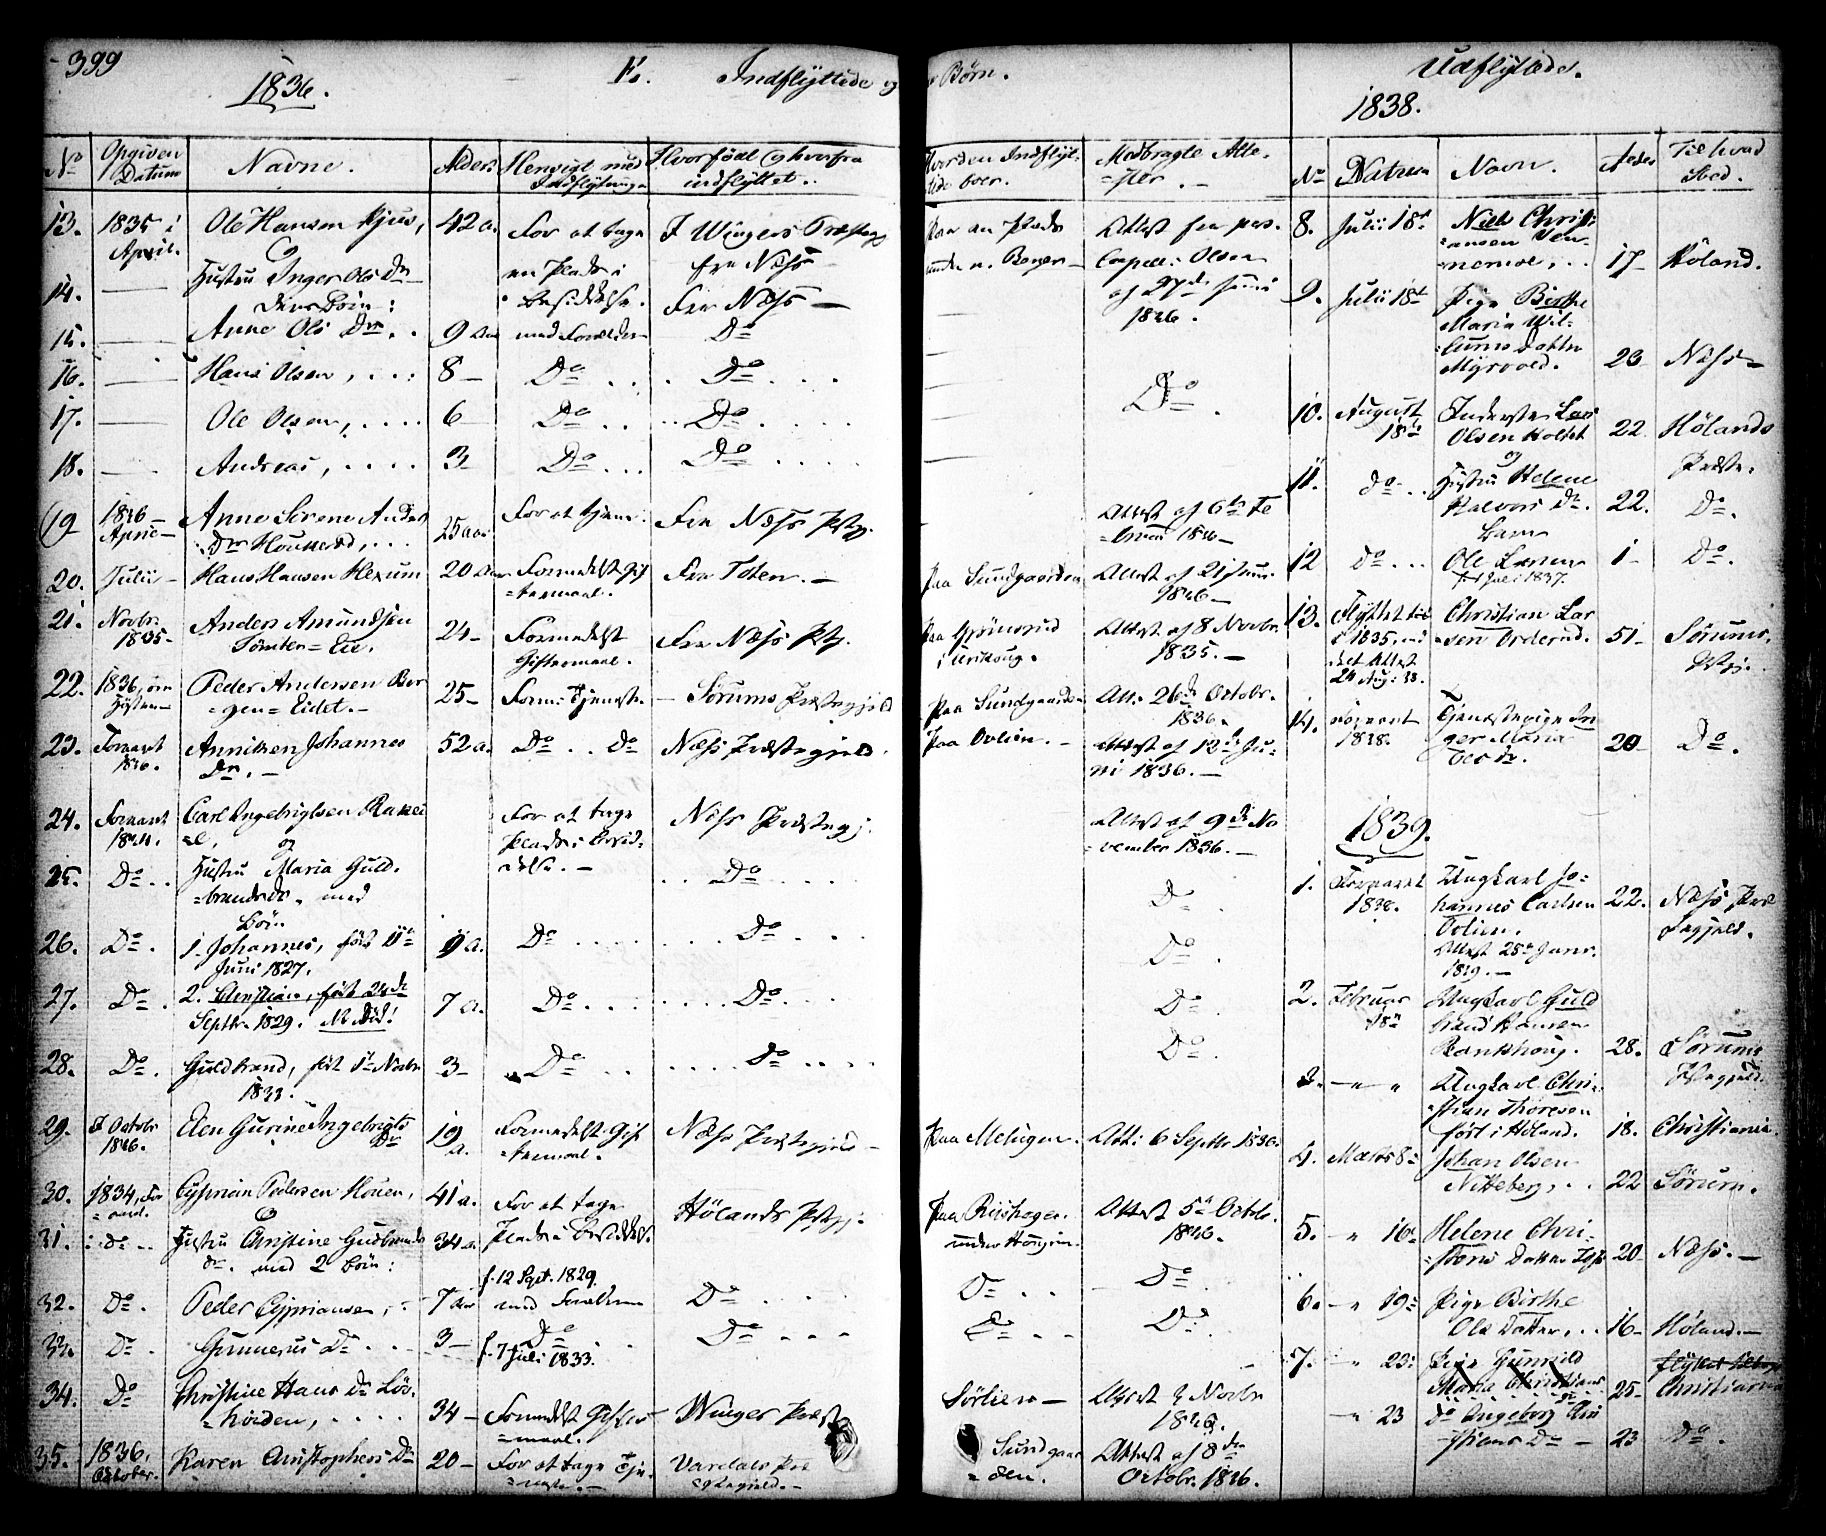 399
1836.
E. Indflyttede og Børn.
No
Opgiven Datum
Navne.
Alder
Hensigt med Indflytning
Hvor født og hvorfra indflyttet.
Hvorden Indflyttede boer.
Medbragte Attester.
13. 1835 i April. Ole Hansen 42 a. For at tage en Plads i Besiddelse. I Wingers Præstegj fra Næss Paa en Plads under Attest fra pers. Capell: Olsen af 27de Juni 1836.
og
14. Hustru Inger Ols Dr Fra Næss
deres Börn:
15. Anne Ols Dr. 9 med Forældre Do
16. Hans Olsen, 8 Do Do
17. Ole Olsen, 6 Do Do Do
18. Andreas, 3 Do Do
19 1836 April Anne Serene Anders Dr 25 aar For at tjene Fra Næss Pstgj. Attest af 6te Februar 1836
20. Julii Hans Hansen Hexum 20 Formedelst Giftermaal. Fra Toten. Paa Sundgaarden Attest af 21 Juni 1836
21. Novbr. 1835 Anders Amundsen Tömten Eie. 24 Formedelst Giftermaal. Fra Næss Pstgj. Paa i Attest af 8 Novbr. 1835.
22. 1836, om Høsten Peder Andersen Bergen Eidet. 25 Form: Tjeneste Sørums Præstegjeld Paa Sundgaarden Att. 26de Octobr. 1836.
23. Foraaret 1836. Anniken Johannes Dr. 52 a. Do Do Næss Præstegjeld. Paa Ovlien. Attest af 12de Juni 1836.
24. Foraaret Carl Ingebrigtsen For at tage Plads i Besiddelse. Næss Præstegj. Attest af 9de November 1836.
og
25. Do Hustru Maria Guldbrandsdr. med Do Do
Börn
26. Do 1. Johannes, født Juni 1827. 9 a. Do Do Do
27. Do 2. Christian, født 24de Septbr. 1829. NB Död! 7 a. Do Do Do
28. Do Guldbrand, født 1ste Novbr. 1833. 3 Do Do Do
29. I Octobr 1836. Elen Gurine Ingebrigts Dr 19 a. Formedelst Giftermaal. Næss Præstegjeld Paa Melugen. Att: 6 Septbr 1836.
30. 1834, Cyprian Pedersen Houen, 41 a. For at tage Plads i Besiddelse. Hölands Pstgj. Paa Riishagen under Haugen. Attest 5te Octbr. 1836.
og
31. do Hustru Christine Gulbrands dr. med 2 Börn: 34 a. Do
32. Do Peder Cyprianson, 7 Aar f. 12 Sept. 1829. med Forældrene Do Do Do
33. Do Gunnerus Do 3 Do f. 7 Juli 1833. Do Do
34. Do Christine Hans Dr 34 Formedelst Giftermaal. Winger Præst Sörlien Attest 3 Novbr 1836.
35. 1836, October. Karen Christophers Dr 20 For at tage Tjeneste. Vardals Præstegjeld. Sundgaarden. Attest af 8de Octobr. 1836.
Udflyttede.
1838.
No Datum Navn. Alder Til hvad Sted.
8. Julii 18de Niels Christiansen 17 Höland.
9. Julii 18de Pige Birthe Maria Wilhelms datter Myrvold. 23 Næss
10. August 18de Inderster Lars Olsen Holtet 22 Hölands Præste.
og
11. do Hustru Helene Halvors Dr. 22. Do.
Barn
12 Do Ole Larsen født Juli 1837. 1 Do.
13. Flyttet i 1835. med Attest 24 Aug: 38. Christian Larsen Orderud. 51 Sørums Pstgj.
14. Foraaret 1838. Tjenestepige Inger Maria 20 Do.
1839.
1. Foraaret 1838. Ungkarl Johannes Carlsen Ovlien. Attest 25de Janr. 1839. 22. Næss Præstegjeld.
2. Februar 18de Ungkarl Guldbrand Hansen Bankhoug. 28. Sörums Pstegjeld.
3. " " Ungkarl Christian Thoresen født i Höland. 18. Christiania.
4. Marts 8de Johan Olsen Nitteberg, 22 Sörum.
5. " 16de Helene Christians Datter 20 Næss.
6. " 19de Pige Birthe Ols Datter, 16 Höland.
7. " 23de Pige Gunnild Maria Christians 25 Christiania
" 23 do Ingeborg Christians Dr 23 Do